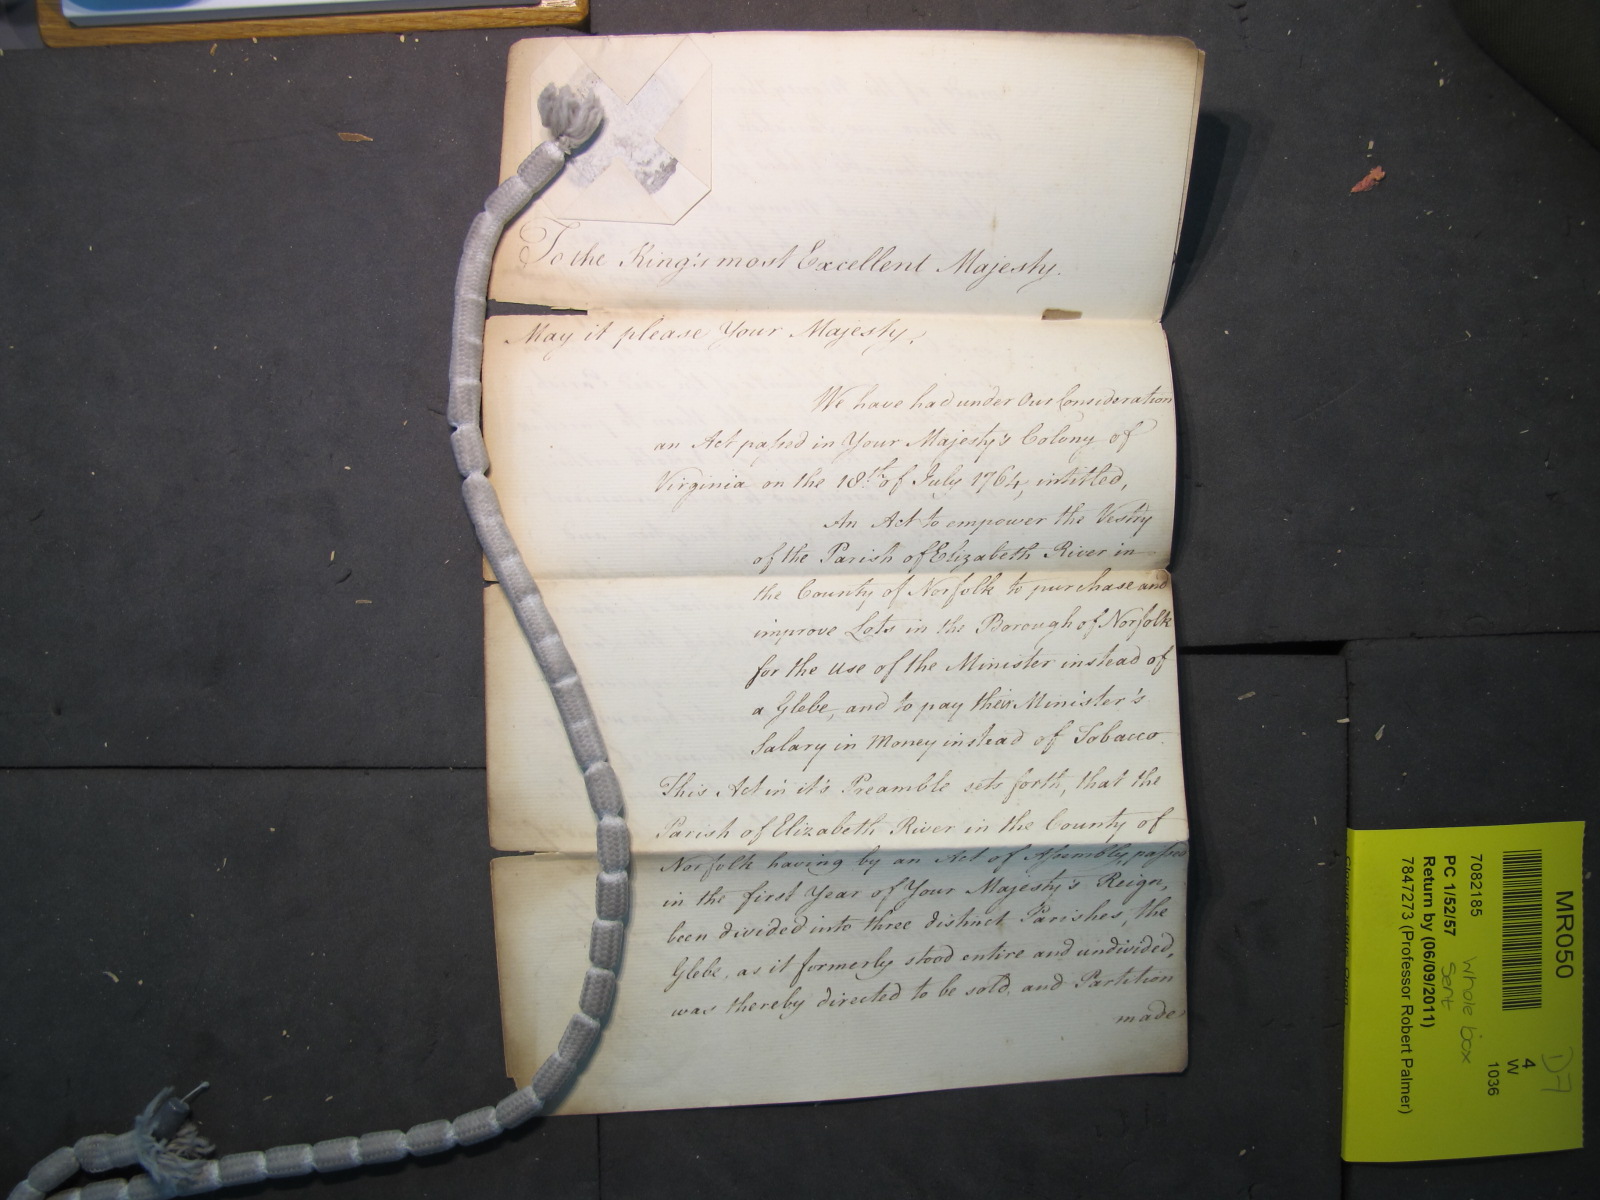 To the King's most Excellent Majesty.
May it please Your Majesty,
We have had under Our Consideration
an Act passed in Your Majesty's Colony of
Virginia on the 18th of July 1764, intitled,
An Act to empower the Vestry
of the Parish of Elizabeth River in
the County of Norfolk to purchase and
improve Lots in the Borough of Norfolk
for the use of the Minister instead of
a Glebe, and to pay their Minister's
Salary in Money instead of Tobacco.
This Act in it's Preamble sets forth, that the
Parish of Elizabeth River in the County of
Norfolk having by an Act of Assembly, passed
in the first Year of Your Majesty's Reign,
been divided into three distinct Parishes, the
Glebe, as it formerly stood entire and undivided,
was thereby directed to be sold, and Partition
made
MR050
7082185
PC 1/52/57
Return by (06/09/2011)
7847273 (Professor Robert Palmer)
whole box
sent
1036
4
W
D7